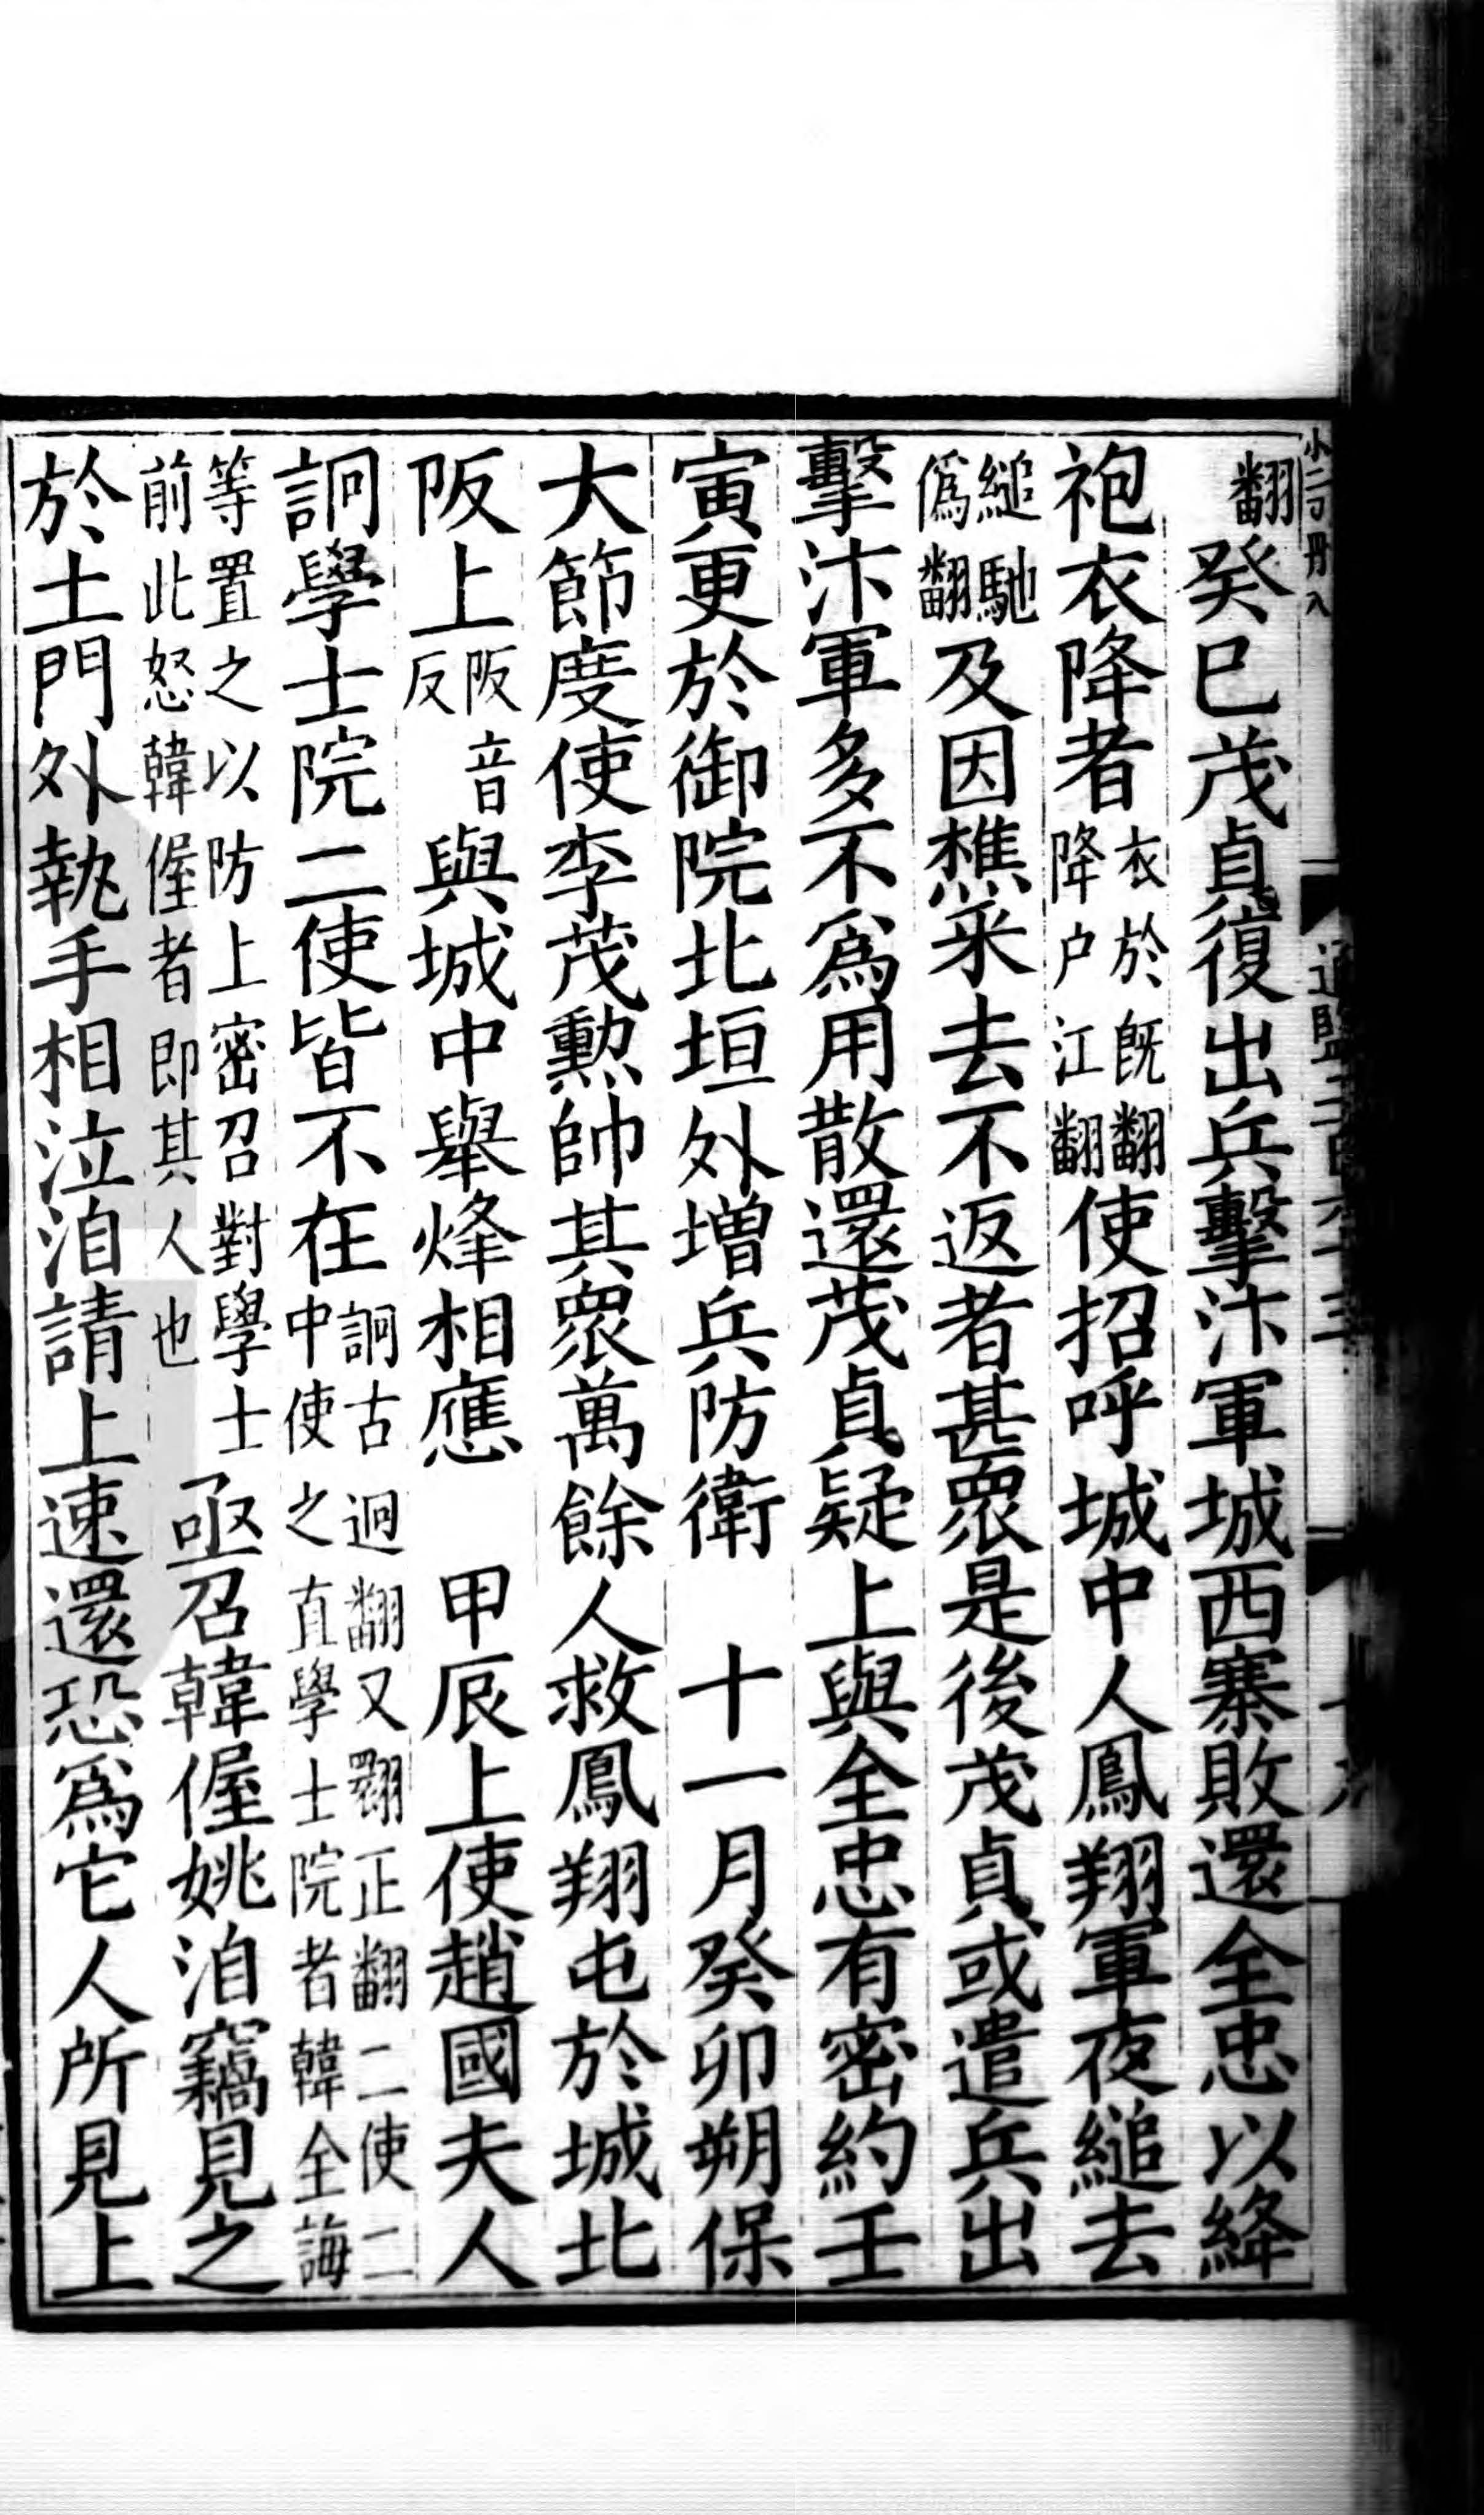 翻癸巳茂貞復出兵擊汴軍城西寨敗還全忠以絳
袍衣降者衣於既翻降户江翻使招呼城中人鳳翔軍夜縋去
縋馳偽翻及因樵采去不返者甚眾是後茂貞或遣兵出
擊汴軍多不為用散還茂貞疑上與全忠有密約壬
寅更於御院北垣外增兵防衛 十一月癸卯朔保
大節度使李茂勲帥其眾萬餘人救鳳翔屯於城北
阪上阪音反與城中舉烽相應 甲辰上使趙國夫人
詗學士院二使皆不在詗古迥翻又翾正翻二使二中使之直學士院者韓全誨
等置之以防上密召對學士前此怒韓偓者即其人也亟召韓偓姚洎竊見之
於土門外執手相泣洎請上速還恐為它人所見上